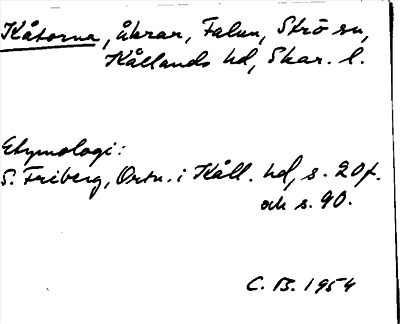 Kåtorna, åkrar, Falun, Strö sn,
Kållands hd, Skar. l.
Etymologi:
S. Friberg, Ortn. i Kåll. hd, s. 20f.
och s. 90.
C. B. 1954